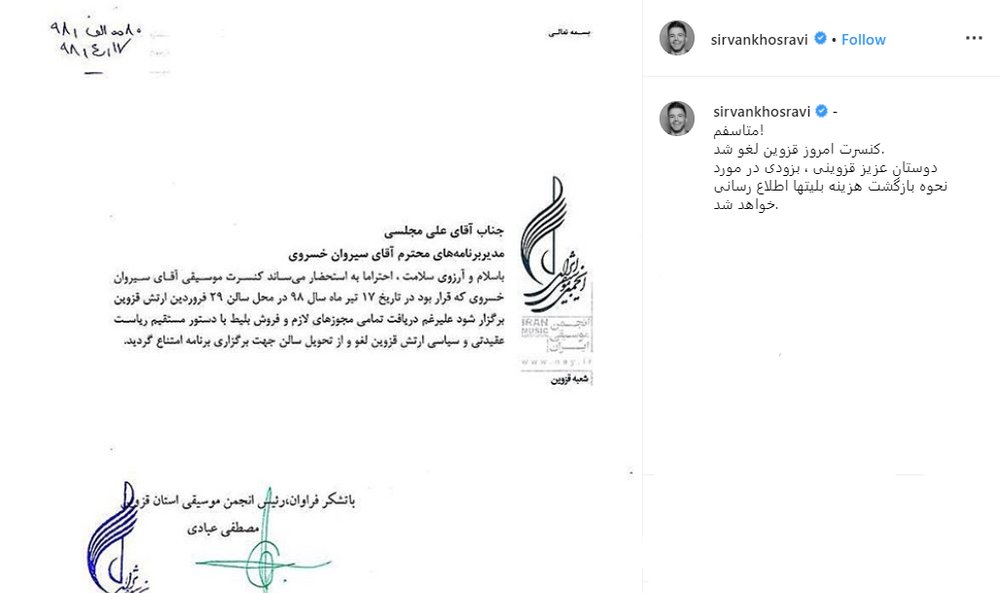 ۹۸/الف ۰۰۸۰
۹۸/۴/۱۷
بسمه تعالی
انجمن موسیقی ایران
IRAN
MUSIC
انجمن
موسیقی
ایران
شعبه قزوین
جناب آقای علی مجلسی
مدیربرنامه‌های محترم آقای سیروان خسروی
باسلام و آرزوی سلامت ، احتراما به استحضار می‌ساند کنسرت موسیقی آقای سیروان
خسروی که قرار بود در تاریخ ۱۷ تیر ماه سال ۹۸ در محل سالن ۲۹ فروردین ارتش قزوین
برگزار شود علیرغم دریافت تمامی مجوزهای لازم و فروش بلیط با دستور مستقیم ریاست
عقیدتی و سیاسی ارتش قزوین لغو و از تحویل سالن جهت برگزاری برنامه امتناع گردید.
باتشکر فراوان،رئیس انجمن موسیقی استان قزوین
مصطفی عبادی
sirvankhosravi • Follow
sirvankhosravi -
متاسفم!
کنسرت امروز قزوین لغو شد.
دوستان عزیز قزوینی ، بزودی در مورد
نحوه بازگشت هزینه بلیتها اطلاع رسانی
خواهد شد.